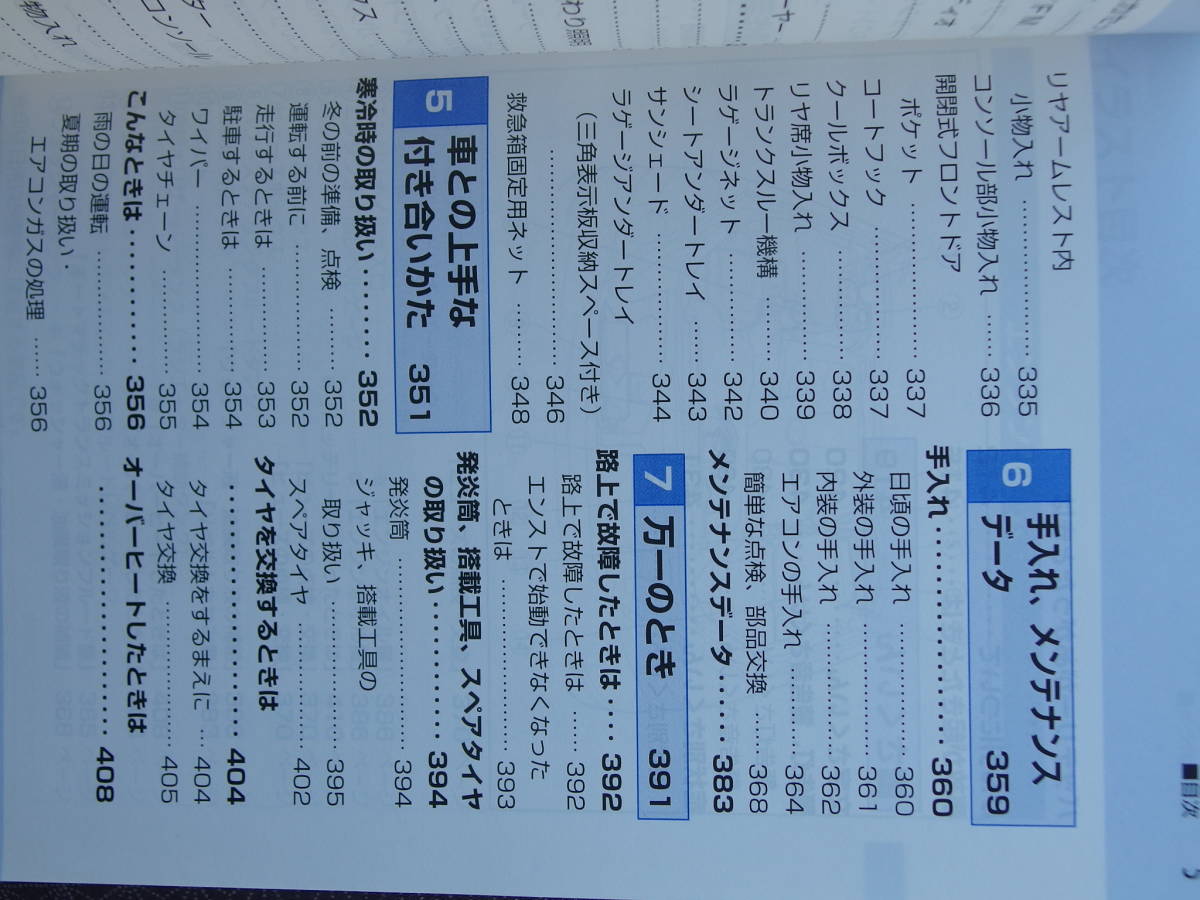 ■目次 5
リヤアームレスト内
小物入れ ………………… 335
コンソール部小物入れ …… 336
開閉式フロントドア
ポケット ………………… 337
コートフック ……………… 337
クールボックス …………… 338
リヤ席小物入れ …………… 339
トランクスルー機構 ……… 340
ラゲージネット …………… 342
シートアンダートレイ …… 343
サンシェード ……………… 344
ラゲージアンダートレイ
（三角表示板収納スペース付き）
………………………… 346
救急箱固定用ネット ……… 348
5 車との上手な
付き合いかた 351
寒冷時の取り扱い ‥‥‥‥ 352
冬の前の準備、点検 ……… 352
運転する前に ……………… 352
走行するときは …………… 353
駐車するときは …………… 354
ワイパー …………………… 354
タイヤチェーン …………… 355
こんなときは ‥‥‥‥‥‥ 356
雨の日の運転 ……………… 356
夏期の取り扱い・
エアコンガスの処理 …… 356
6 手入れ、メンテナンス
データ 359
手入れ ‥‥‥‥‥‥‥‥‥ 360
日頃の手入れ ……………… 360
外装の手入れ ……………… 361
内装の手入れ ……………… 362
エアコンの手入れ ………… 364
簡単な点検、部品交換 …… 368
メンテナンスデータ ‥‥‥ 383
7 万一のとき 391
路上で故障したときは ‥‥ 392
路上で故障したときは …… 392
エンストで始動できなくなった
ときは …………………… 393
発炎筒、搭載工具、スペアタイヤ
の取り扱い ‥‥‥‥‥‥‥ 394
発炎筒 ……………………… 394
ジャッキ、搭載工具の
取り扱い ………………… 395
スペアタイヤ ……………… 402
タイヤを交換するときは
‥‥‥‥‥‥‥‥‥‥‥‥ 404
タイヤ交換をするまえに … 404
タイヤ交換 ………………… 405
オーバーヒートしたときは
‥‥‥‥‥‥‥‥‥‥‥‥ 408